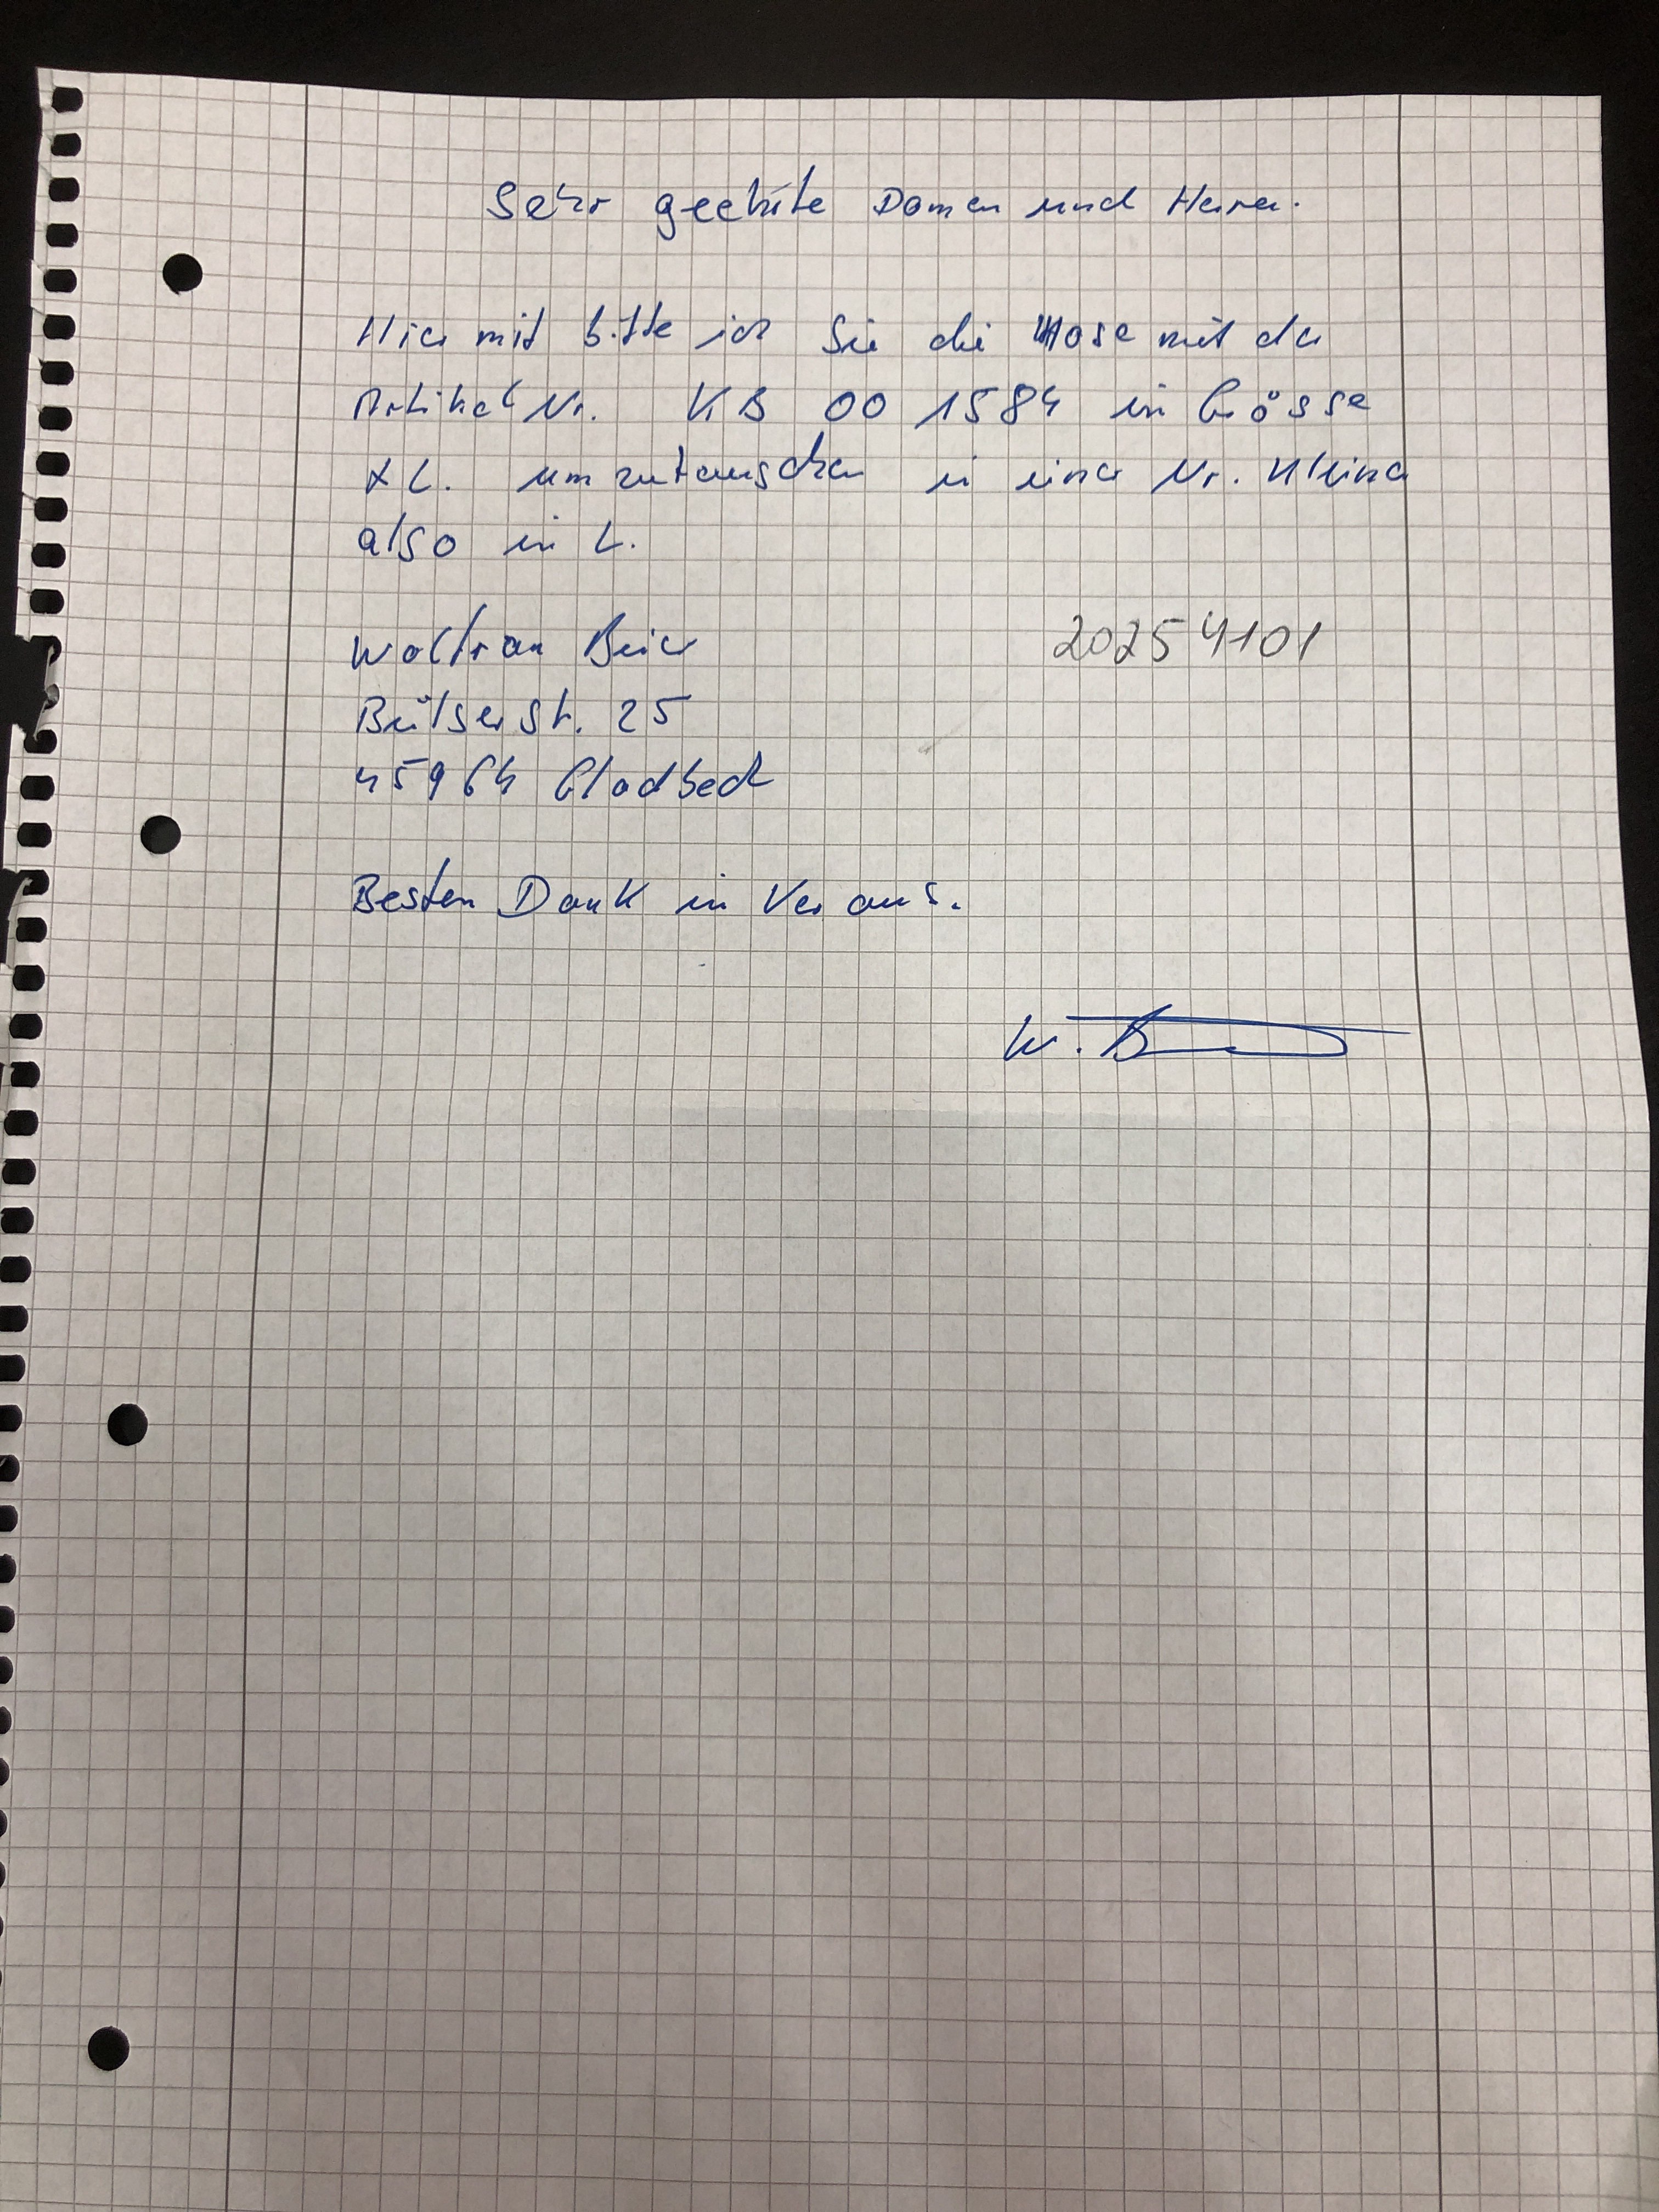 Sehr geehrte Damen und Herren.
Hier mit bitte ich Sie die Hose mit der
Artikel Nr. KB 00 1584 in Grösse
XL. umzutauschen in einer Nr. Kleiner
also in L.
Wolfram Beier
20254101
Bülserstr. 25
45964 Gladbeck
Besten Dank in Voraus.
W. B